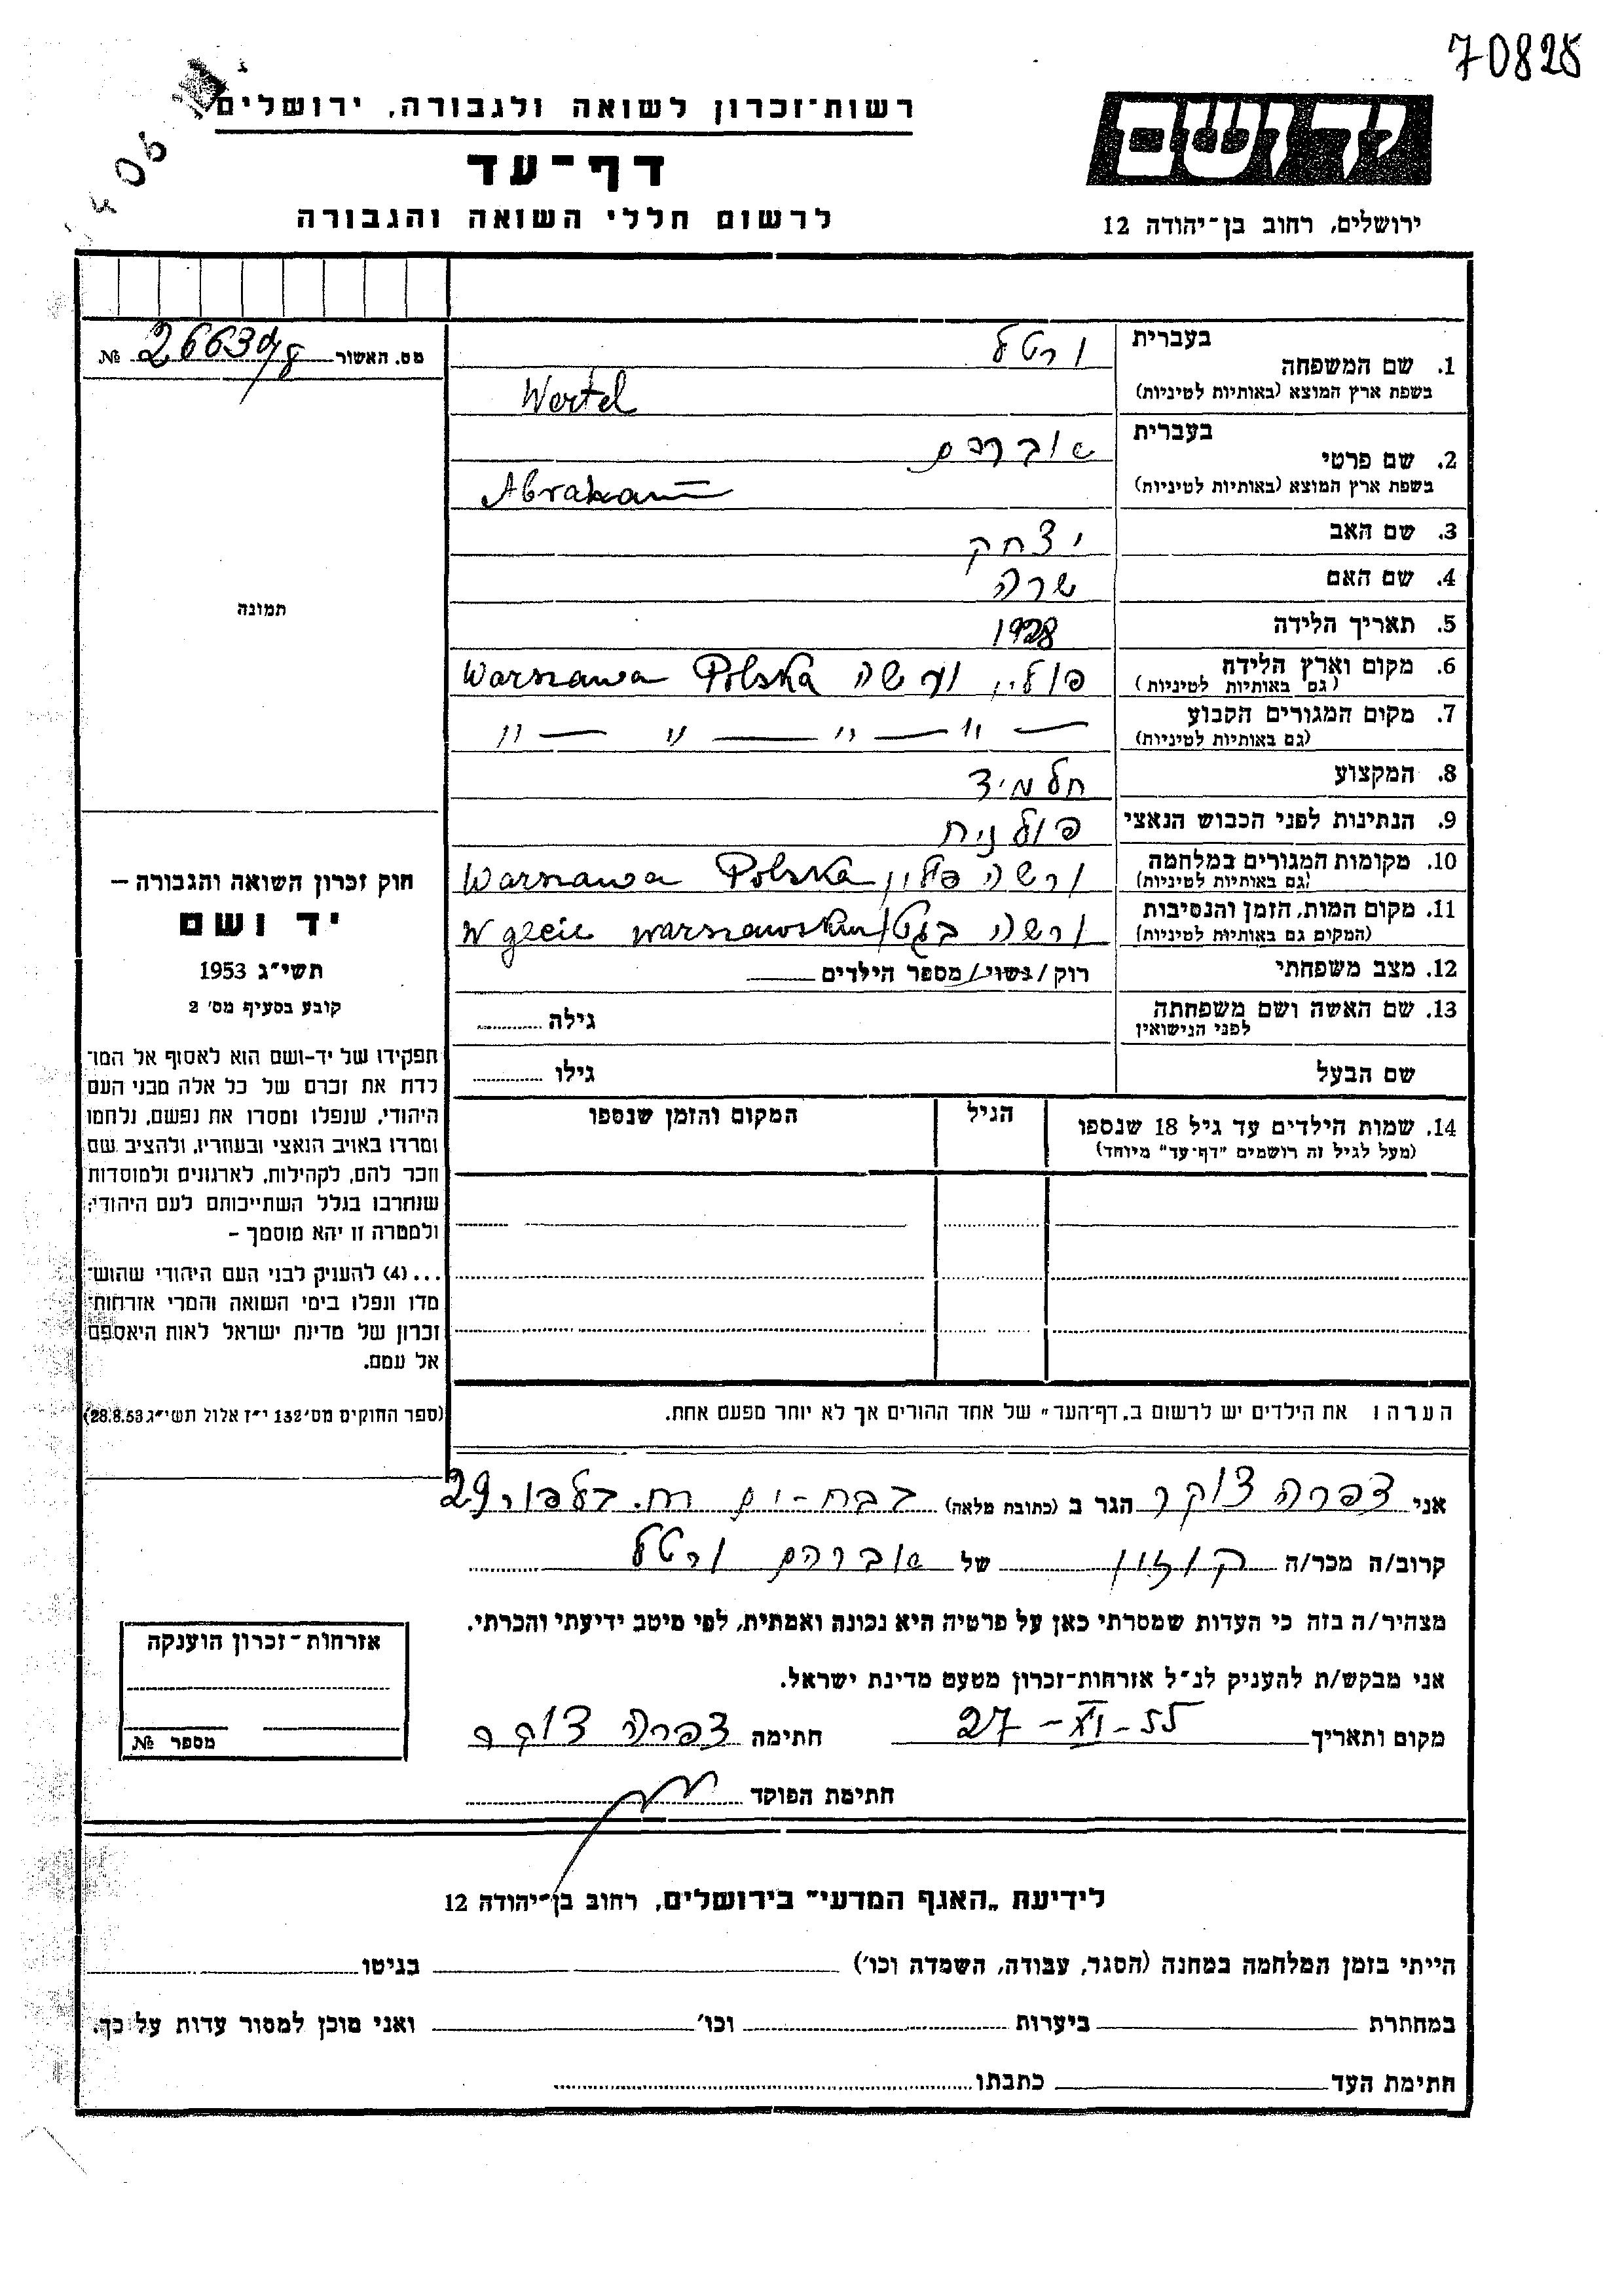 70828
רשות-זכרון לשואה ולגבורה, ירושלים
יד ושם
דף-עד
לרשום חללי השואה והגבורה
ירושלים, רחוב בן-יהודה 12
בעברית
ורטל
1. שם המשפחה
בשפת ארץ המוצא (באותיות לטיניות)
Wertel
בעברית
2. שם פרטי
בשפת ארץ המוצא (באותיות לטיניות)
Abraham
3. שם האב יצחק
4. שם האם שרה
5. תאריך הלידה 1928
6. מקום וארץ הלידה
(גם באותיות לטיניות)
פולין ורשה Warszawa Polska
7. מקום המגורים הקבוע
(גם באותיות לטיניות)
— " — " — " — "
8. המקצוע תלמיד
9. הנתינות לפני הכבוש הנאצי פולנית
10. מקומות המגורים במלחמה
(גם באותיות לטיניות)
ורשה פולין Warszawa Polska
11. מקום המות, הזמן והנסיבות
(המקום גם באותיות לטיניות)
ורשה בגטו W warszawskim
12. מצב משפחתי רוק / נשוי / מספר הילדים
13. שם האשה ושם משפחתה
לפני הנישואין
גילה
שם הבעל גילו
14. שמות הילדים עד גיל 18 שנספו
(מעל לגיל זה רושמים "דף-עד" מיוחד)
הגיל
המקום והזמן שנספו
הערה: את הילדים יש לרשום ב„דף-העד" של אחד ההורים אך לא יותר מפעם אחת.
מס. האשור №
תמונה
חוק זכרון השואה והגבורה –
יד ושם
תשי"ג 1953
קובע בסעיף מס' 2
תפקידו של יד-ושם הוא לאסוף אל המו־
לדת את זכרם של כל אלה מבני העם
היהודי, שנפלו ומסרו את נפשם, נלחמו
ומרדו באויב הנאצי ובעוזריו, ולהציב שם
וזכר להם, לקהילות, לארגונים ולמוסדות
שנחרבו בגלל השתייכותם לעם היהודי;
ולמטרה זו יהא מוסמך –
... (4) להעניק לבני העם היהודי שהוש־
מדו ונפלו בימי השואה והמרי אזרחות־
זכרון של מדינת ישראל לאות היאספם
אל עמם.
(ספר החוקים מס' 132 י"ז אלול תשי"ג 28.8.53)
אני צפרה צוקר הגר ב (כתובת מלאה) בבת-ים רח. בלפור 29
קרוב/ה מכר/ה קוזין של אברהם ורטל
מצהיר/ה בזה כי העדות שמסרתי כאן על פרטיה היא נכונה ואמתית, לפי מיטב ידיעתי והכרתי.
אני מבקש/ת להעניק לנ"ל אזרחות-זכרון מטעם מדינת ישראל.
מקום ותאריך 27-XI-55 חתימה צפרה צוקר
חתימת הפוקד
אזרחות-זכרון הוענקה
מספר №
לידיעת „האגף המדעי" בירושלים, רחוב בן-יהודה 12
הייתי בזמן המלחמה במחנה (הסגר, עבודה, השמדה וכו') בגיטו
במחתרת ביערות וכו' ואני מוכן למסור עדות על כך.
חתימת העד כתבתו